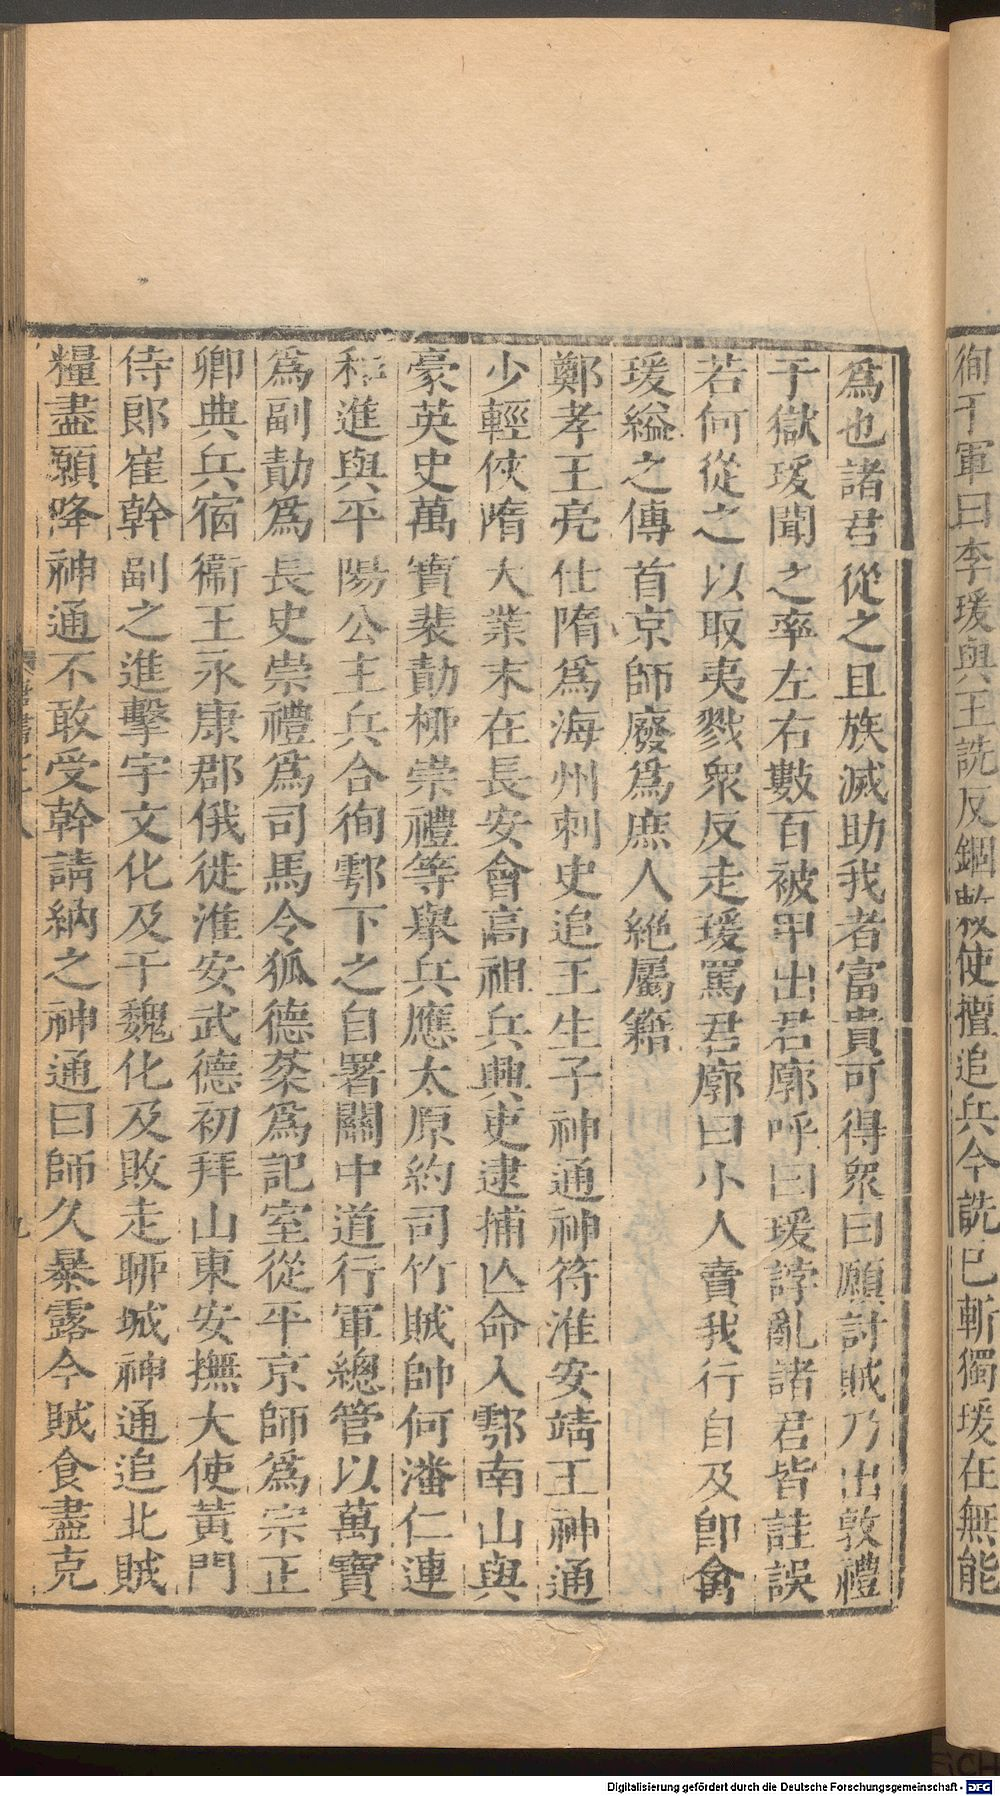 徇于軍曰李瑗與王詵反錮敕使擅追兵今詵已斬獨瑗在無能
爲也諸君從之且族滅助我者富貴可得衆曰願討賊乃出敦禮
于獄瑗聞之率左右數百被甲出君廓呼曰瑗誖亂諸君皆詿誤
若何從之以取夷戮衆反走瑗罵君廓曰小人賣我行自及卽禽
瑗縊之傳首京師廢爲庶人絶屬籍
鄭孝王亮仕隋爲海州刺史追王生子神通神符淮安靖王神通
少輕俠隋大業末在長安會高祖兵興吏逮捕亾命入鄠南山與
豪英史萬寶裴勣柳崇禮等舉兵應太原約司竹賊帥何潘仁連
和進與平陽公主兵合徇鄠下之自署關中道行軍總管以萬寶
爲副勣爲長史崇禮爲司馬令狐德棻爲記室從平京師爲宗正
卿典兵宿衞王永康郡俄徙淮安武德初拜山東安撫大使黃門
侍郎崔幹副之進擊宇文化及于魏化及敗走聊城神通追北賊
糧盡願降神通不敢受幹請納之神通曰師久暴露今賊食盡克
唐書七十八
九
Digitalisierung gefördert durch die Deutsche Forschungsgemeinschaft - DFG